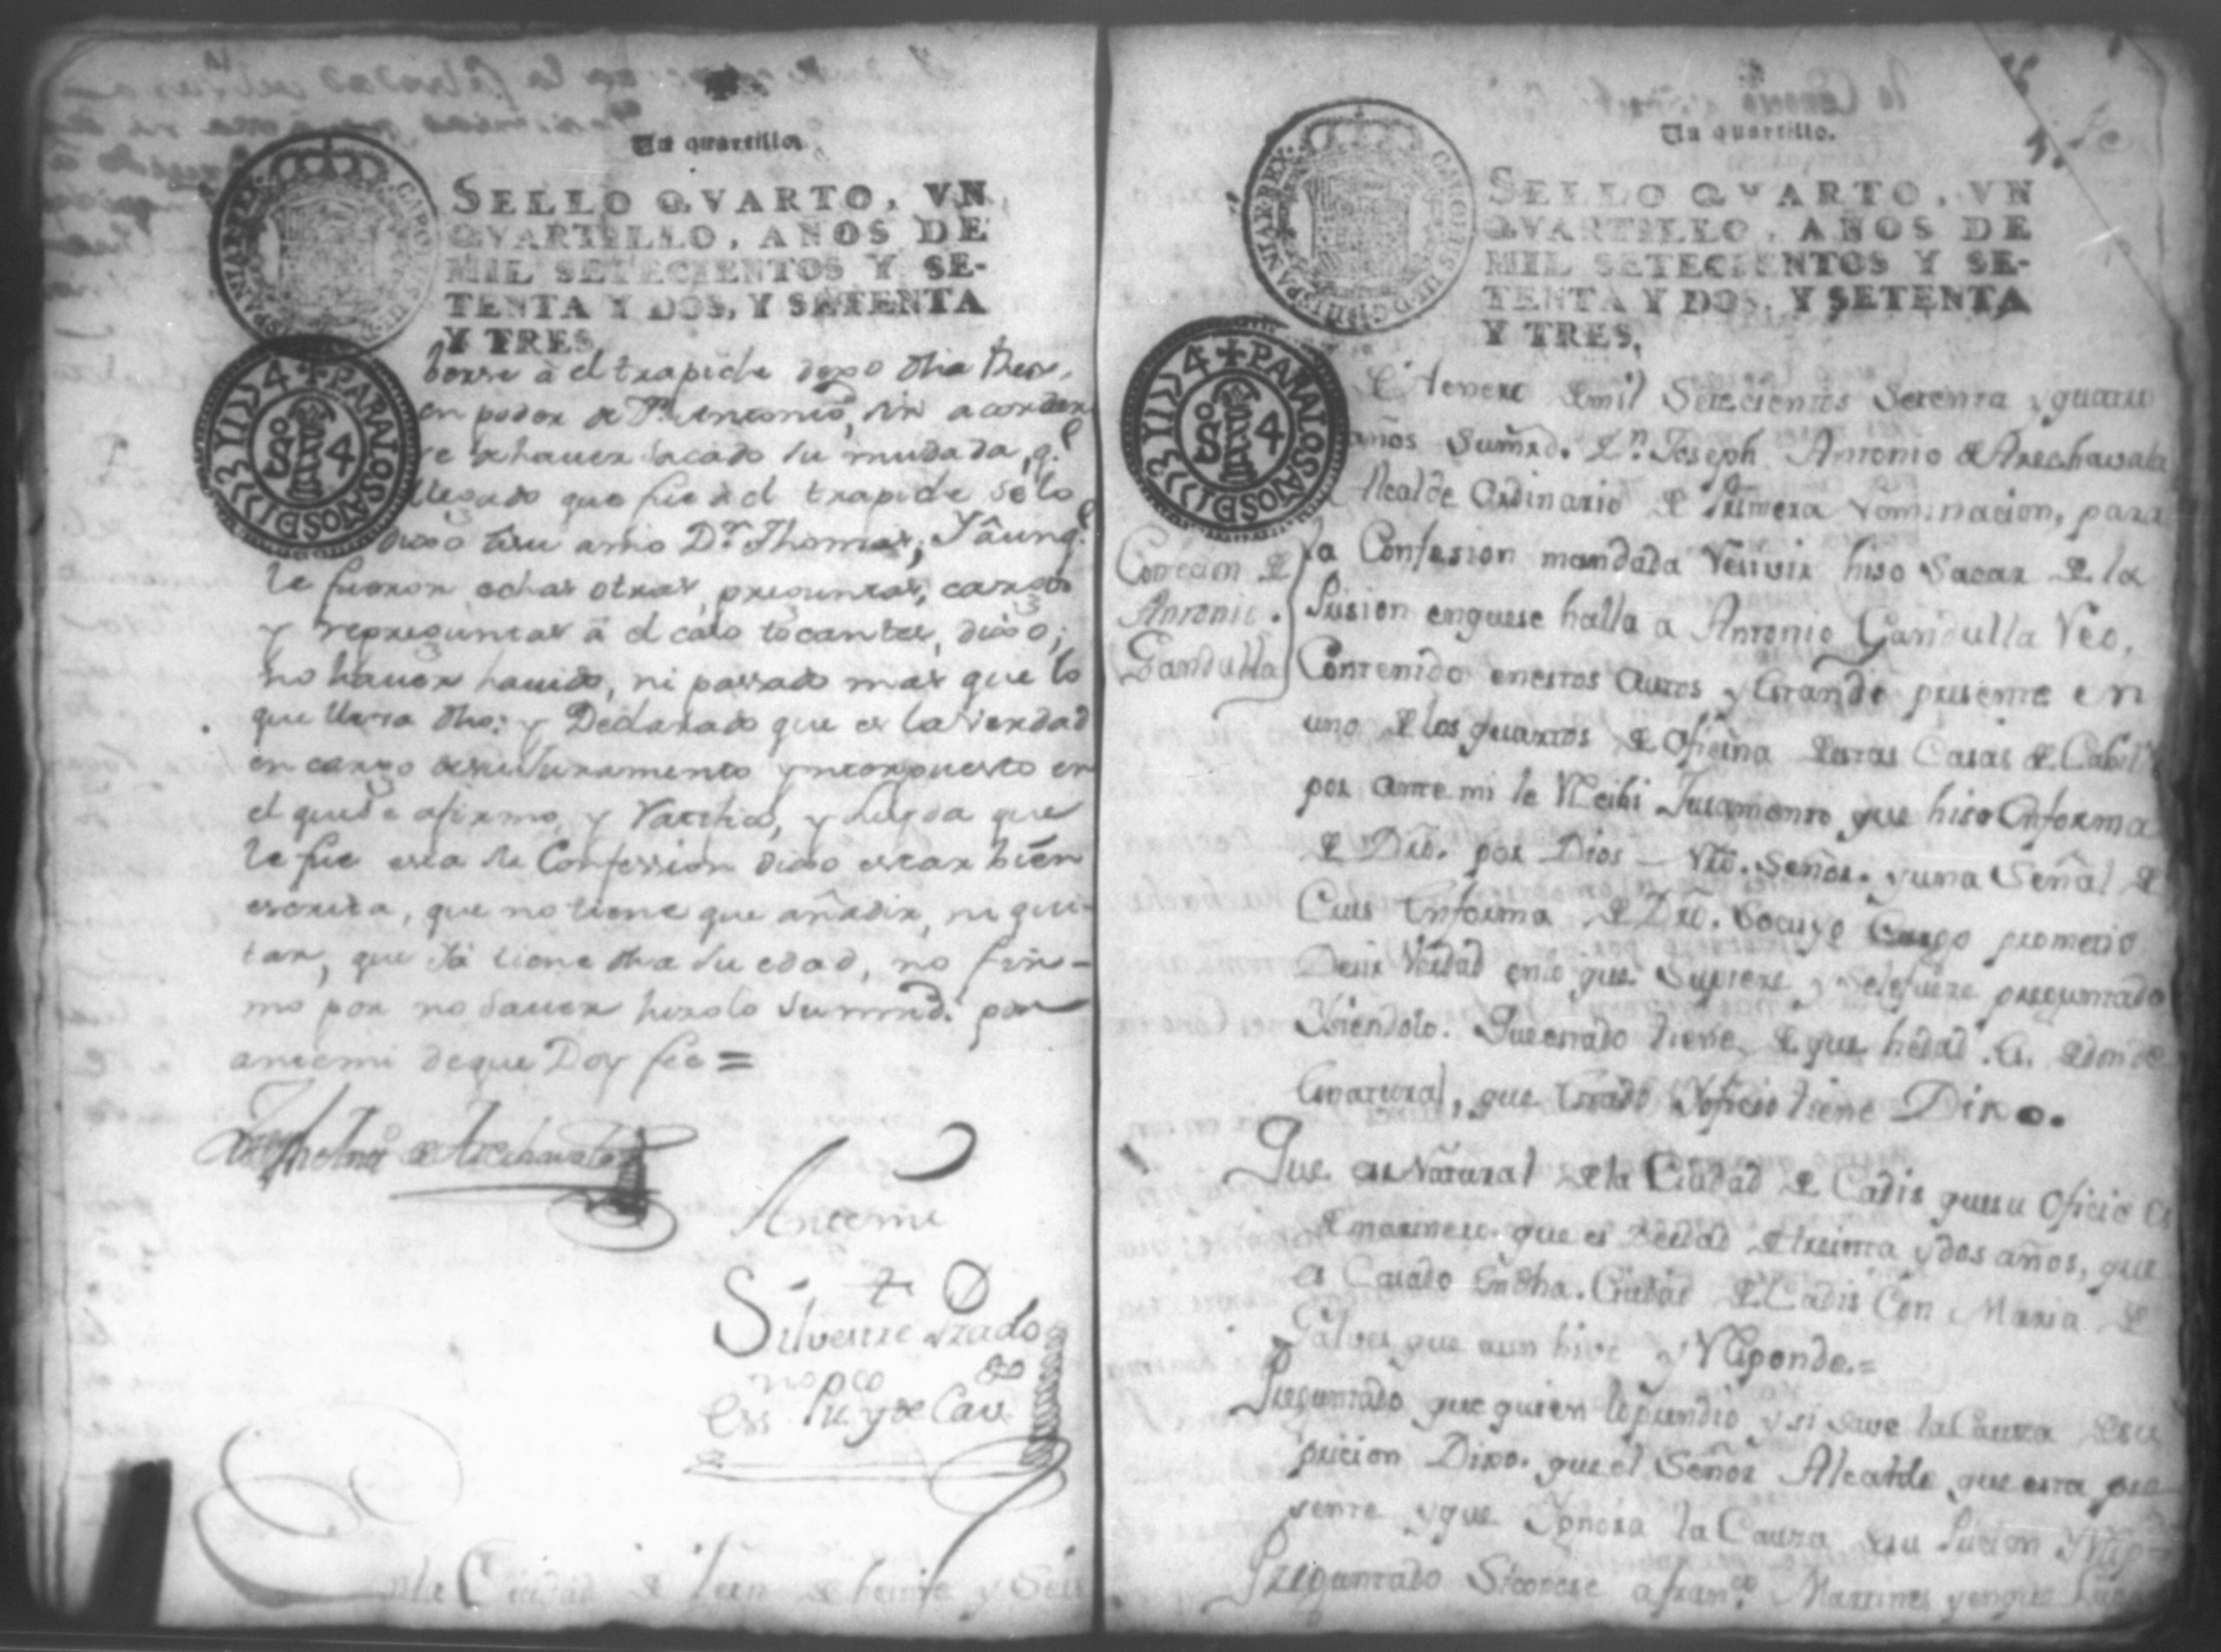 Un quartillo.
SELLO QVARTO, VN
QVARTILLO, AÑOS DE
MIL SETECIENTOS Y SE-
TENTA Y DOS, Y SETENTA
Y TRES.
CAROLUS III D G HISPANIAR REX
PARA LOS AÑOS D 1773 Y 1774
SO 4
berse â el trapiche dexo dha
en poder de Dn. Antonio, sin acordar
se de hauer sacado su mudada, q.e
llegado que fue â el trapiche se lo
dixo â su amo Dn. Thomas; Y âunq.e
le fueron echas otras preguntas, cargos
y repreguntas â el caso tocantes, dixo;
no hauer hauido, ni passado mas que lo
que lleva dho: y Declarado que es la verdad
en cargo de su Juramento ynterpuesto en
el que se afirmo, y ratificó, y leyda que
le fue esta su Confession dixo estar bien
escrita, que no tiene que añadir, ni qui-
tar, que ya tiene dha su edad, no fir-
mo por no saver hizolo su mrd. por
antemi de que Doy fee =
Joseph Antto de Arechavala
Antemi
Silvestre Prado
Ess Pu y de Cav.
En la Ciudad de Leon de beinte y Seis
Un quartillo.
SELLO QVARTO, VN
QVARTILLO, AÑOS DE
MIL SETECIENTOS Y SE-
TENTA Y DOS, Y SETENTA
Y TRES.
CAROLUS III D G HISPANIAR REX
PARA LOS AÑOS D 1773 Y 1774
SO 4
de Henero de mil Setecientos Setenta y quatro
años Su mrd. Dn. Joseph Antonio de Arechavala
Alcalde Ordinario de Primera Nominacion, para
la Confesion mandada Resivir hiso Sacar de la
Confecion de
Antonio
Gandulla
Prision en que se halla a Antonio Gandulla Reo,
Contenido en estos autos y estando presente en
uno de los quartos de Oficina de estas Casas de Cabildo
por ante mi le Recibi Juramento que hiso en forma
de Dro. por Dios Nro. Señor. y una Señal de
Cruz en forma de Dro. so cuyo Cargo prometio
Desir Verdad en lo que Supiere y se le fuere preguntado
Que estado tiene, de que hedad es. de donde
es natural, que estado y oficio tiene Dixo.
Que es Natural de la Ciudad de Cadis que su Oficio es
de marinero. que es de edad de treinta y dos años, que
es Casado en dha. Ciudad de Cadis Con Maria de
Galves que aun bive y Responde.=
Preguntado que quien lo prendio y si save la Causa de su
pricion Dixo. que el Señor Alcalde que esta pre
sente y que Ygnora la Causa de su Pricion y Resp.
Preguntado Si conose a Fran.co Martines y en que